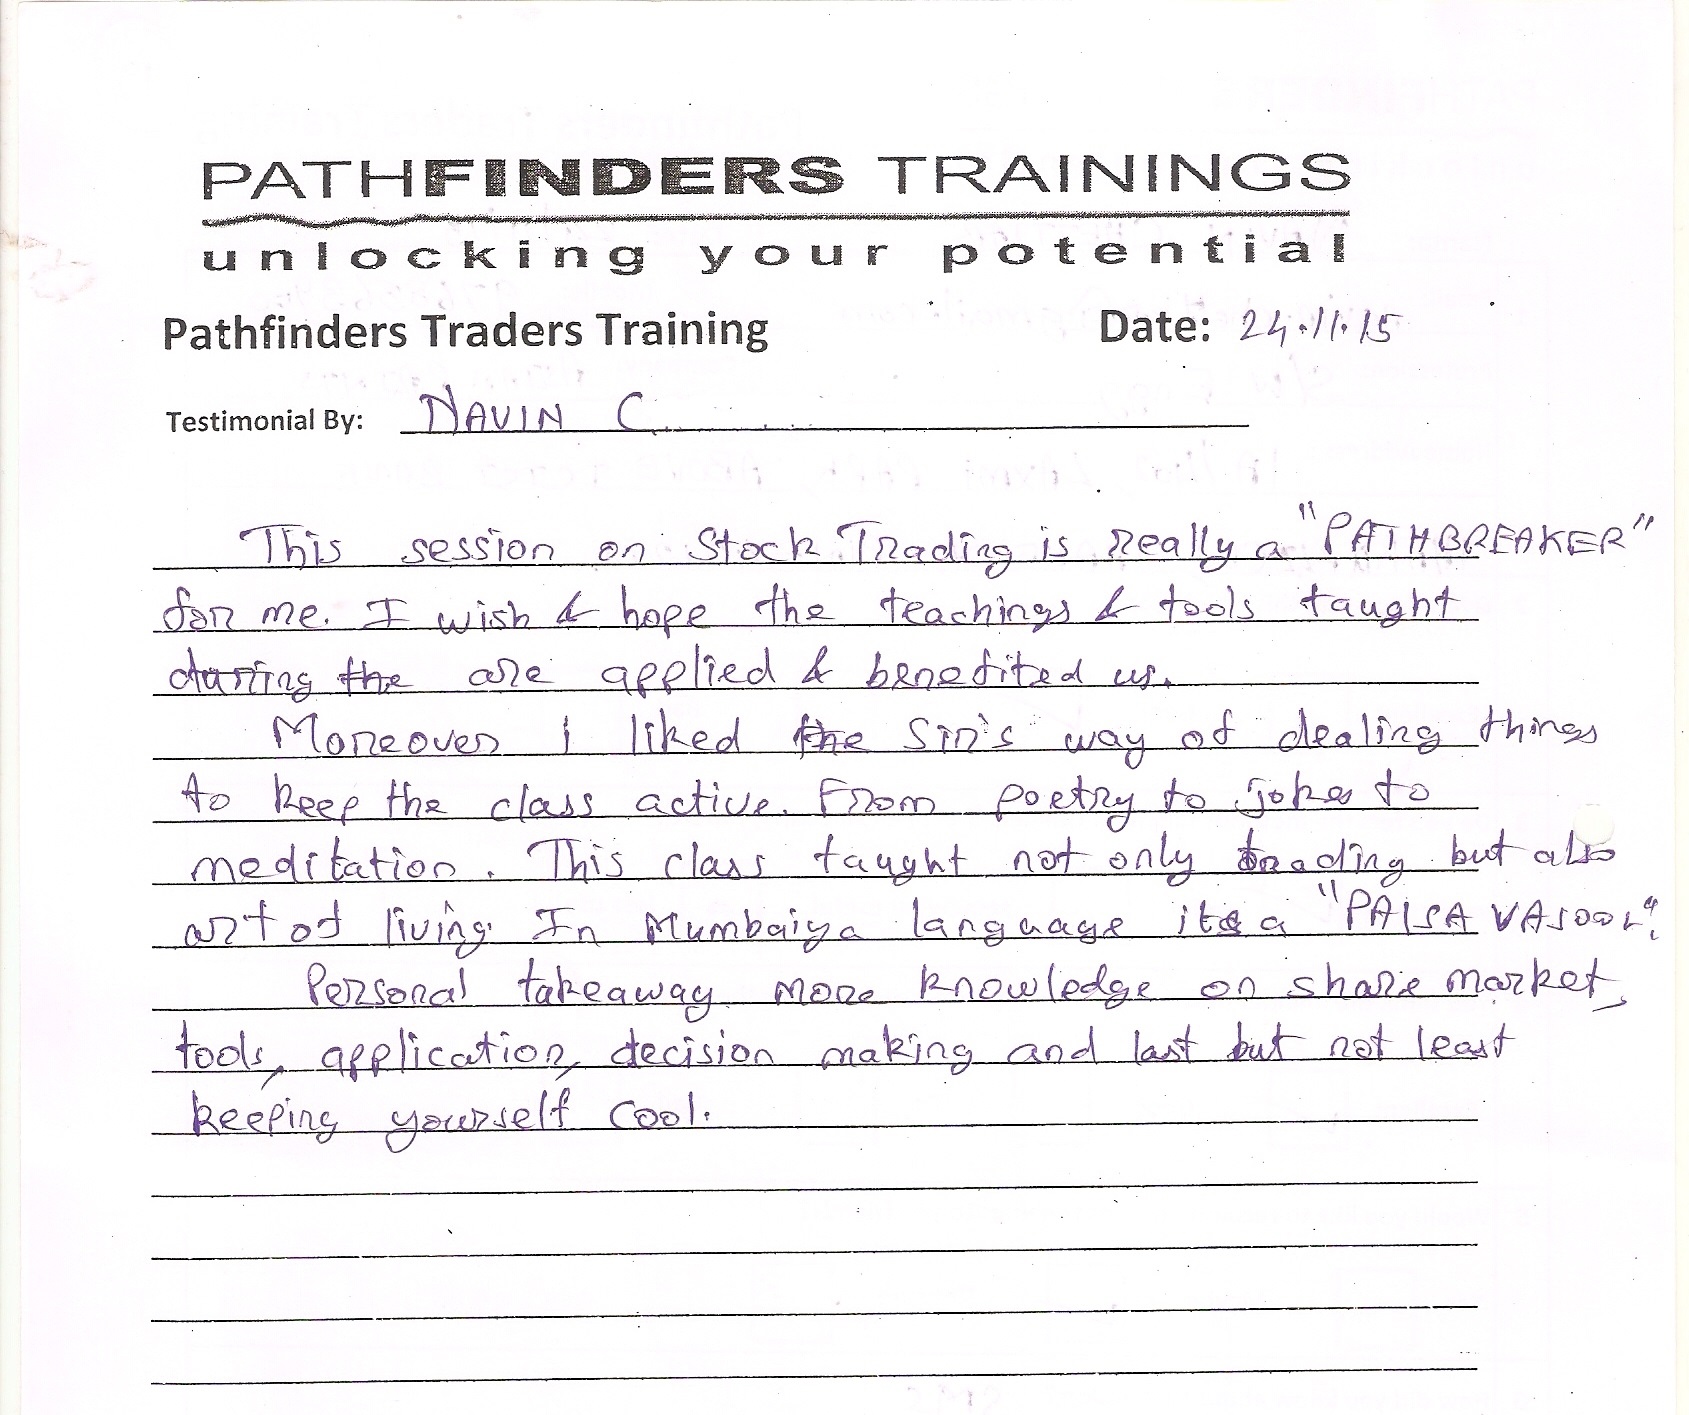 PATHFINDERS TRAININGS
unlocking your potential
Pathfinders Traders Training Date: 24.11.15
Testimonial By: NAVIN C
This session on Stock Trading is really a "PATHBREAKER"
for me. I wish & hope the teachings & tools taught
during the are applied & benefited us.
Moreover I liked the Sir's way of dealing things
to keep the class active. From poetry to jokes to
meditation. This class taught not only trading but also
art of living. In Mumbaiya language its a "PAISA VASOOL".
Personal takeaway more knowledge on share market,
tools, application, decision making and last but not least
keeping yourself cool.